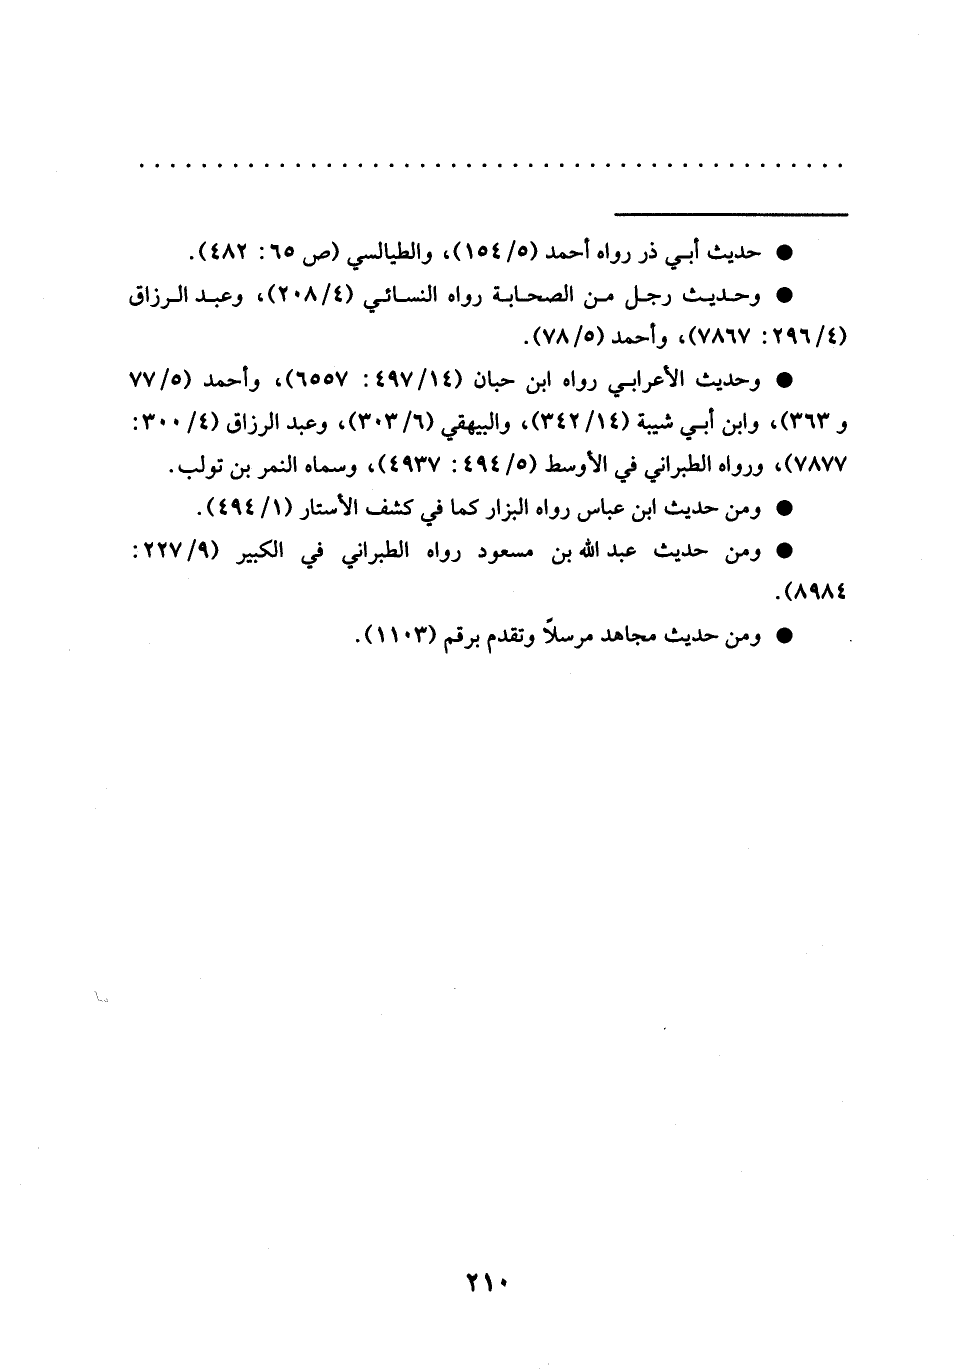 . . . . . . . . . . . . . . . . . . . . . . . . . . . . . . . . . . . . . . . . . . . . . .
● حديث أبي ذر رواه أحمد (٥/ ١٥٤)، والطيالسي (ص ٦٥: ٤٨٢).
● وحديث رجل من الصحابة رواه النسائي (٤/ ٢٠٨)، وعبد الرزاق
(٤/ ٢٩٦: ٧٨٦٧)، وأحمد (٥/ ٧٨).
● وحديث الأعرابي رواه ابن حبان (١٤/ ٤٩٧: ٦٥٥٧)، وأحمد (٥/ ٧٧
و ٣٦٣)، وابن أبي شيبة (١٤/ ٣٤٢)، والبيهقي (٦/ ٣٠٣)، وعبد الرزاق (٤/ ٣٠٠:
٧٨٧٧)، ورواه الطبراني في الأوسط (٥/ ٤٩٤: ٤٩٣٧)، وسماه النمر بن تولب.
● ومن حديث ابن عباس رواه البزار كما في كشف الأستار (١/ ٤٩٤).
● ومن حديث عبد الله بن مسعود رواه الطبراني في الكبير (٩/ ٢٢٧:
٨٩٨٤).
● ومن حديث مجاهد مرسلاً وتقدم برقم (١١٠٣).
٢١٠